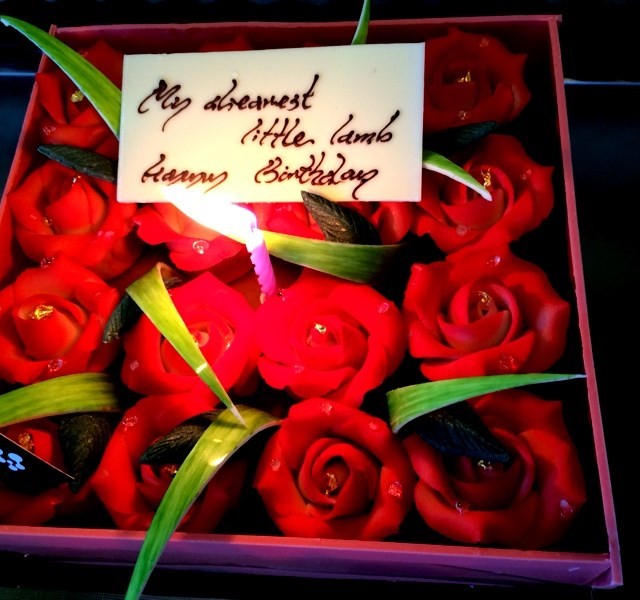 My dreamest
little lamb
Happy Birthday